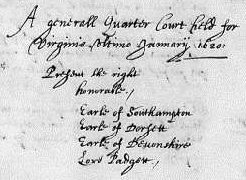 A generall Quarter Court held for
Virginia ultimo January, 1620:
Present the right
honorable,
Earle of Southampton
Earle of Dorsett
Earle of Devonshire
Lord Padgett,